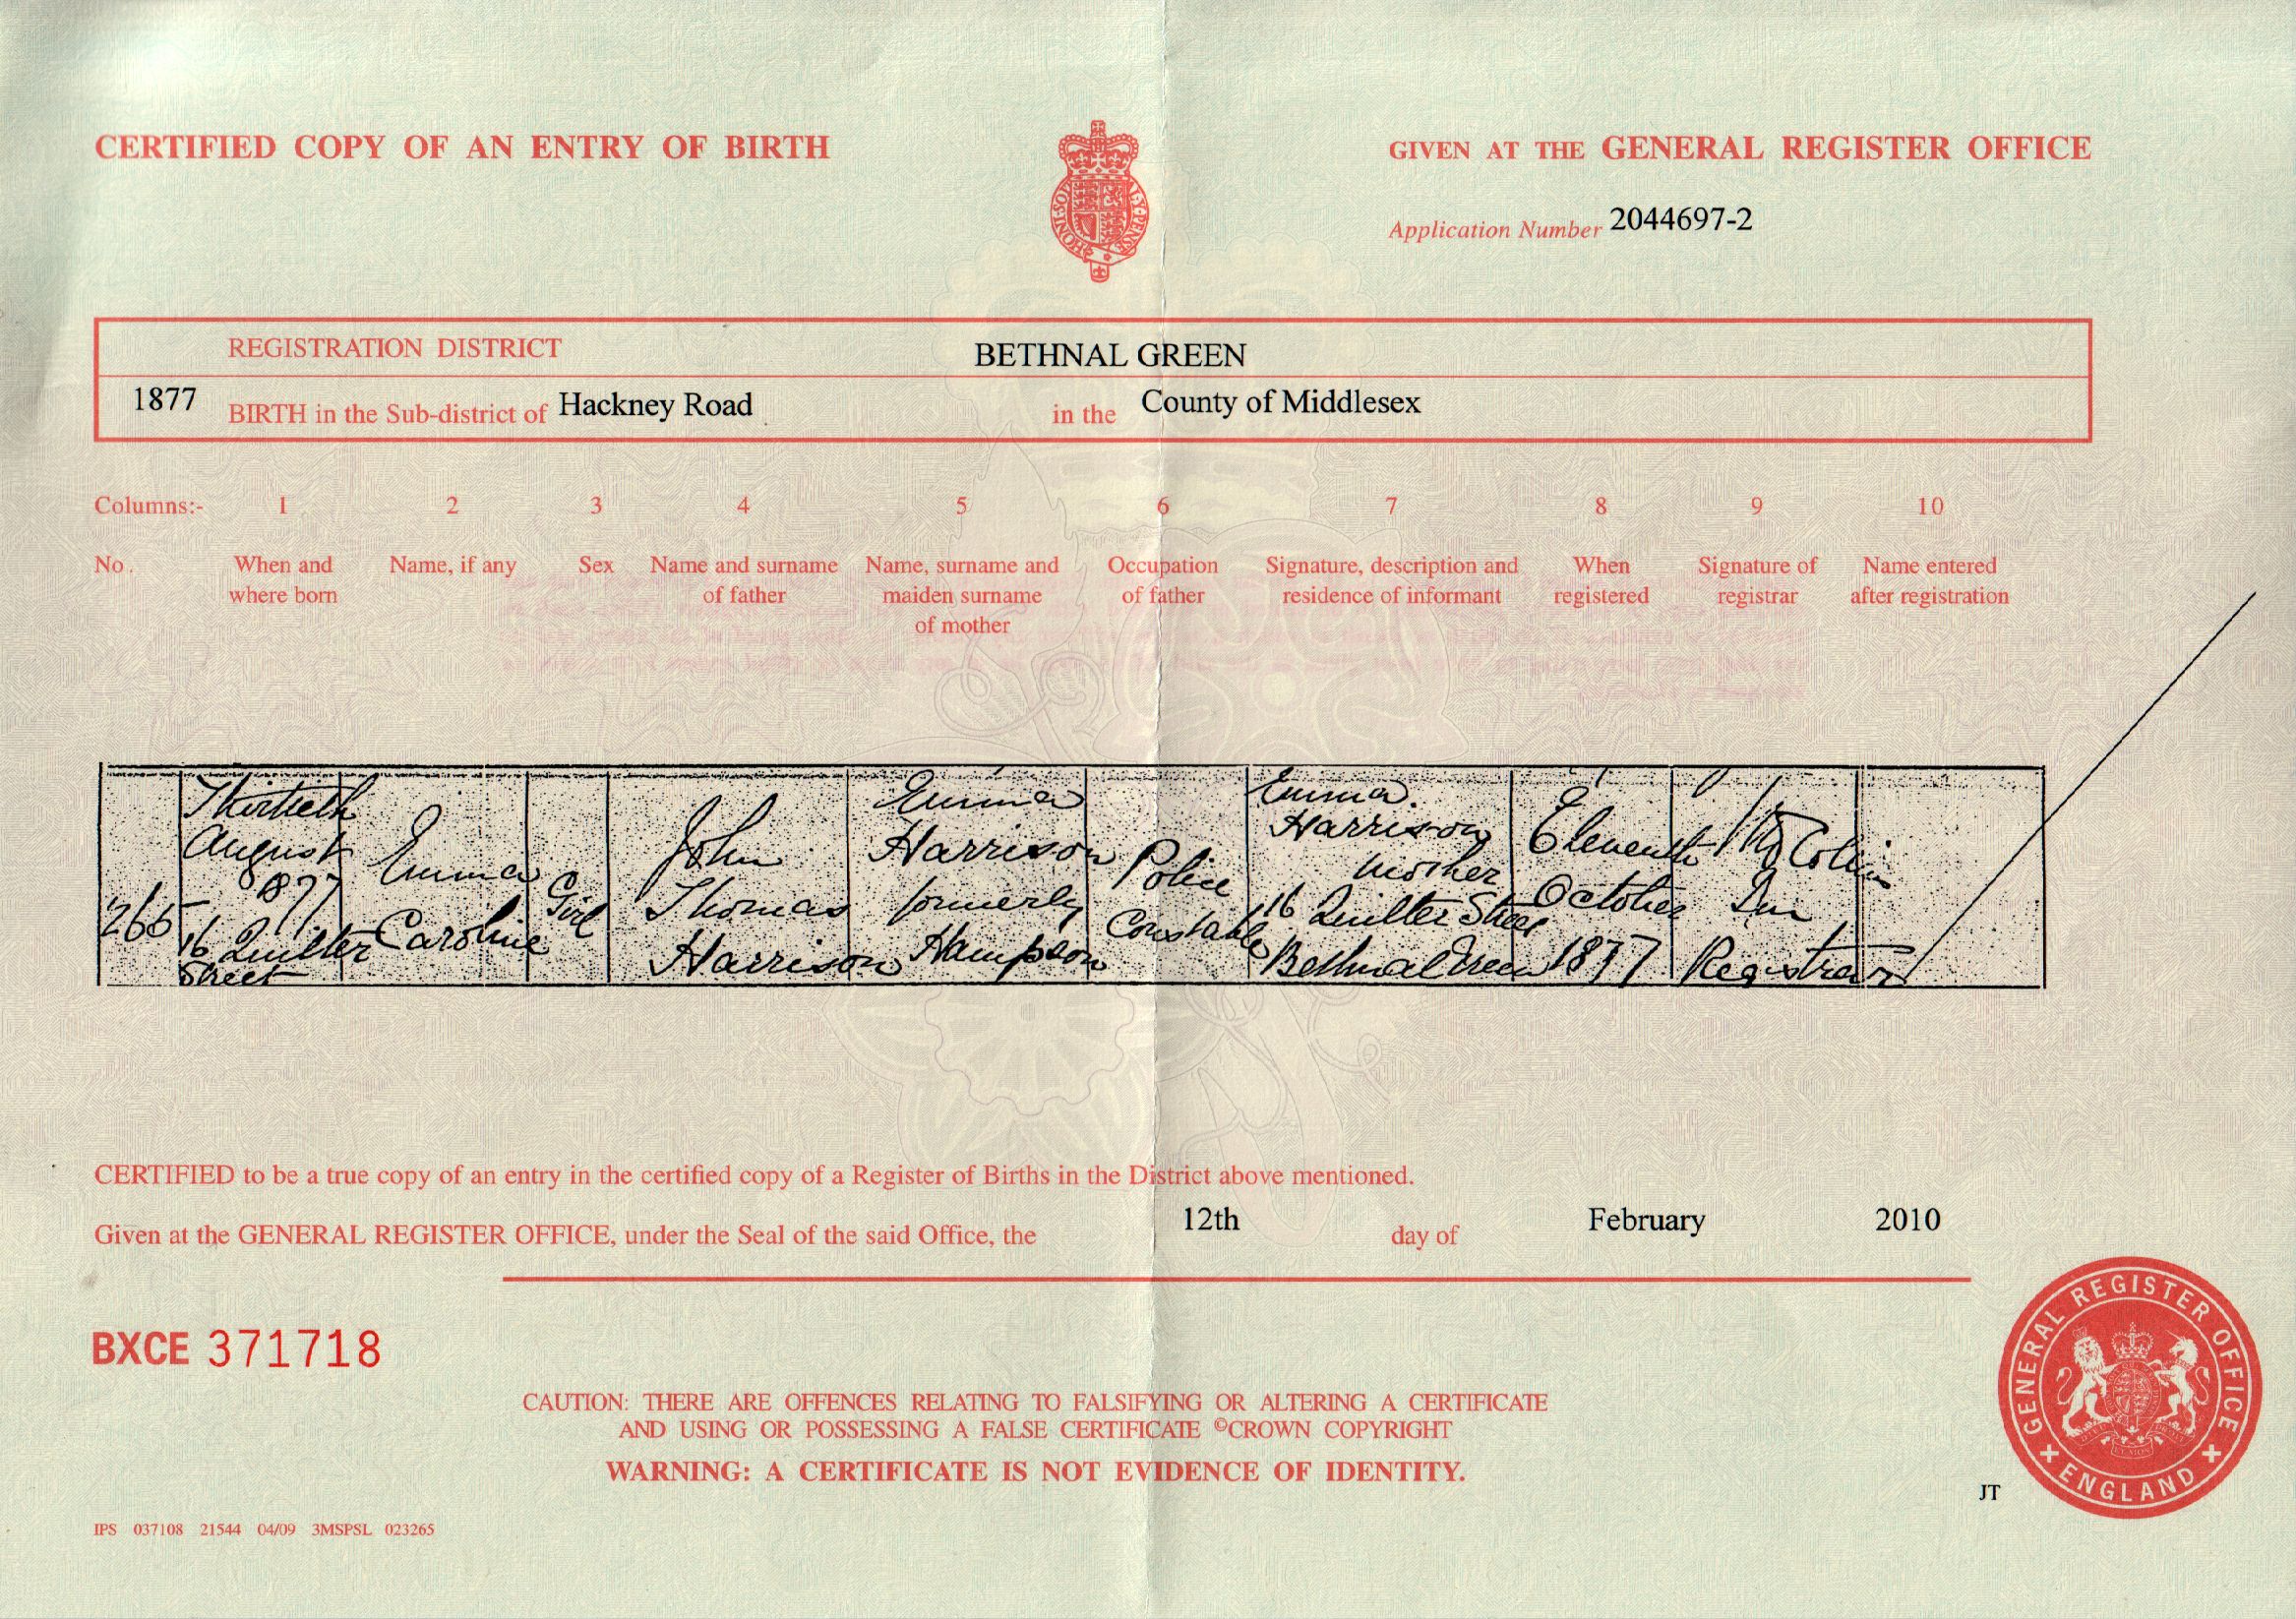 CERTIFIED COPY OF AN ENTRY OF BIRTH
GIVEN AT THE GENERAL REGISTER OFFICE
HONI·SOI
Y·PENSE
Application Number 2044697-2
REGISTRATION DISTRICT BETHNAL GREEN
1877 BIRTH in the Sub-district of Hackney Road in the County of Middlesex
Columns:- 1 2 3 4 5 6 7 8 9 10
No. When and where born
Name, if any
Sex
Name and surname of father
Name, surname and maiden surname of mother
Occupation of father
Signature, description and residence of informant
When registered
Signature of registrar
Name entered after registration
265
Thirtieth
August
1877
16 Quilter
Street
Emma
Caroline
Girl
John
Thomas
Harrison
Emma
Harrison
formerly
Hampson
Police
Constable
Emma
Harrison
Mother
16 Quilter Street
Bethnal Green
Eleventh
October
1877
Registrar
CERTIFIED to be a true copy of an entry in the certified copy of a Register of Births in the District above mentioned.
Given at the GENERAL REGISTER OFFICE, under the Seal of the said Office, the 12th day of February 2010
BXCE 371718
CAUTION: THERE ARE OFFENCES RELATING TO FALSIFYING OR ALTERING A CERTIFICATE
AND USING OR POSSESSING A FALSE CERTIFICATE ©CROWN COPYRIGHT
WARNING: A CERTIFICATE IS NOT EVIDENCE OF IDENTITY.
GENERAL REGISTER OFFICE
ENGLAND
JT
IPS 037108 21544 04/09 3MSPSL 023265